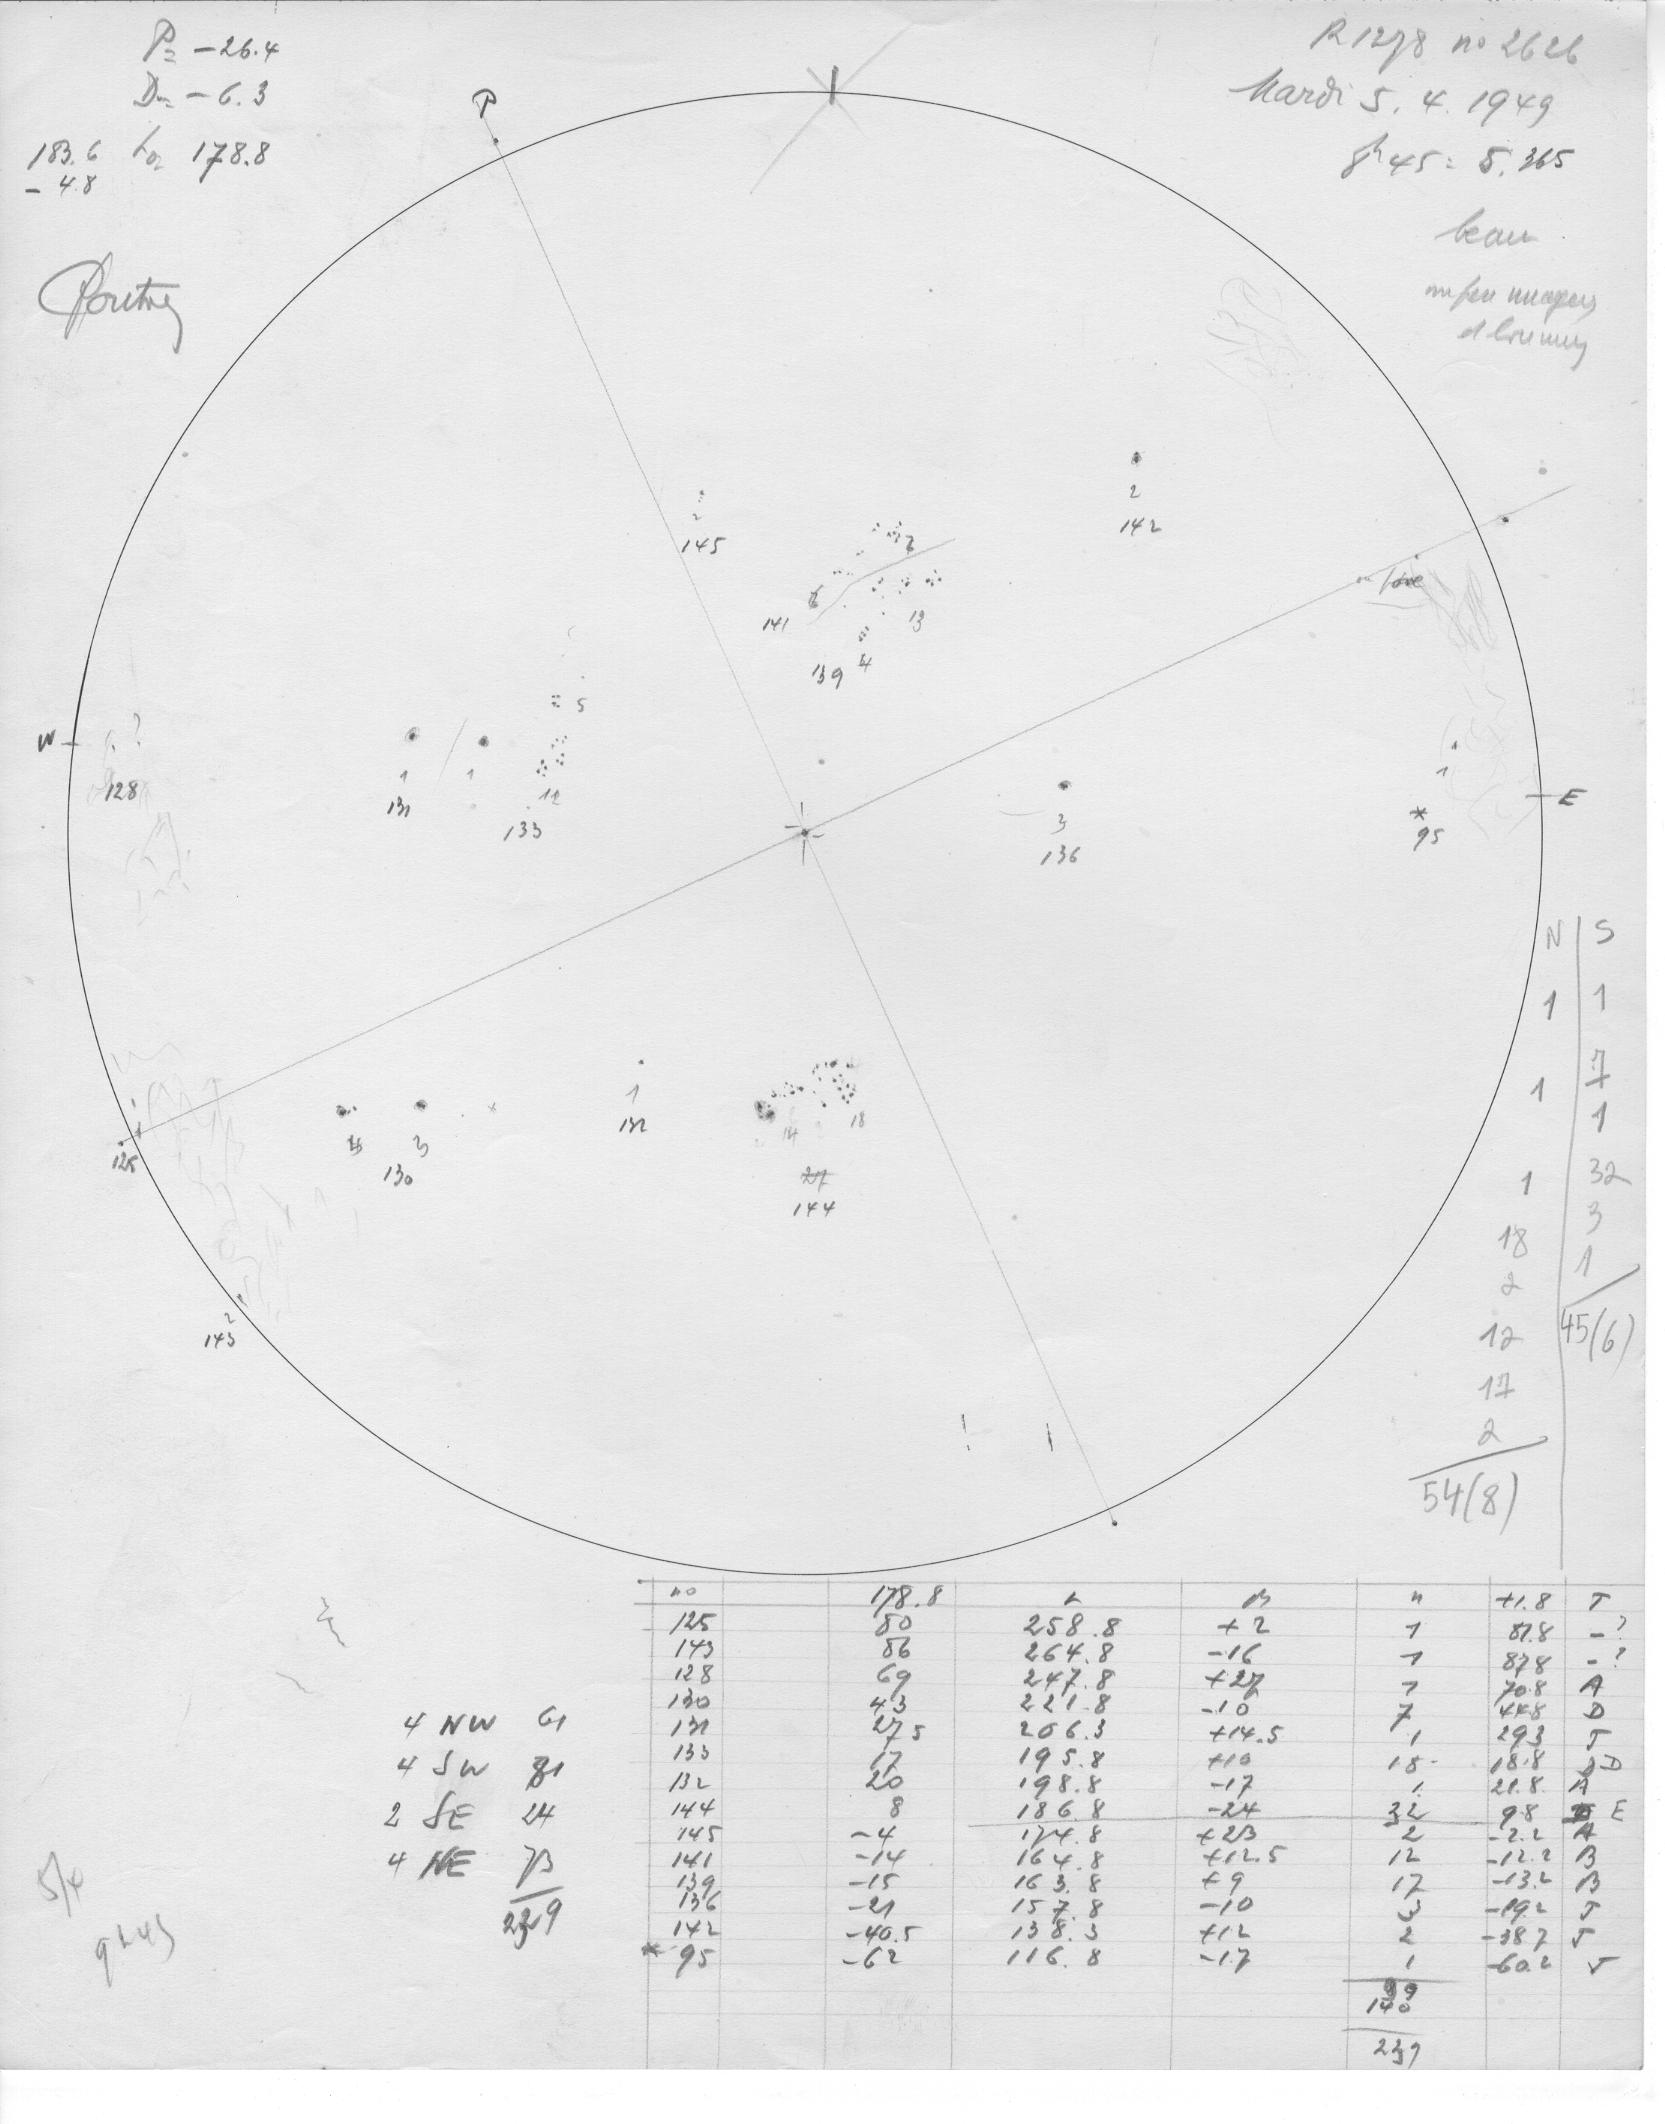 P= -26.4
D= -6.3
183.6 Lo= 178.8
- 4.8
no 2626
Mardi 5. 4. 1949
8h45 = 5.365
beau
un peu nuageux
P
W
E
2
145
2
142
7
6
141
13
139 4
5
1 1
131
12
133
?
128
3
136
1
*
95
N S
1 1
7
1
1
1 32
18 3
2 1
12 45(6)
17
2
54(8)
125
3
130
1
132
14 18
27
144
2
143
no 178.8 L B n +1.8 T
125 80 258.8 +2 1 81.8 - ?
143 86 264.8 -16 1 87.8 - ?
128 69 247.8 +27 1 70.8 A
130 43 221.8 -10 7 44.8 D
131 27.5 206.3 +14.5 1 29.3 J
133 17 195.8 +10 18 18.8 D
132 20 198.8 -17 1 21.8 A
144 8 186.8 -24 32 9.8 E
145 -4 174.8 +23 2 -2.2 A
141 -14 164.8 +12.5 12 -12.2 B
139 -15 163.8 +9 17 -13.2 B
136 -21 157.8 -10 3 -19.2 J
142 -40.5 138.3 +12 2 -38.7 J
* 95 -62 116.8 -17 1 -60.2 J
99
140
239
4 NW 61
4 SW 81
2 SE 24
4 NE 73
239
5/4
9h45